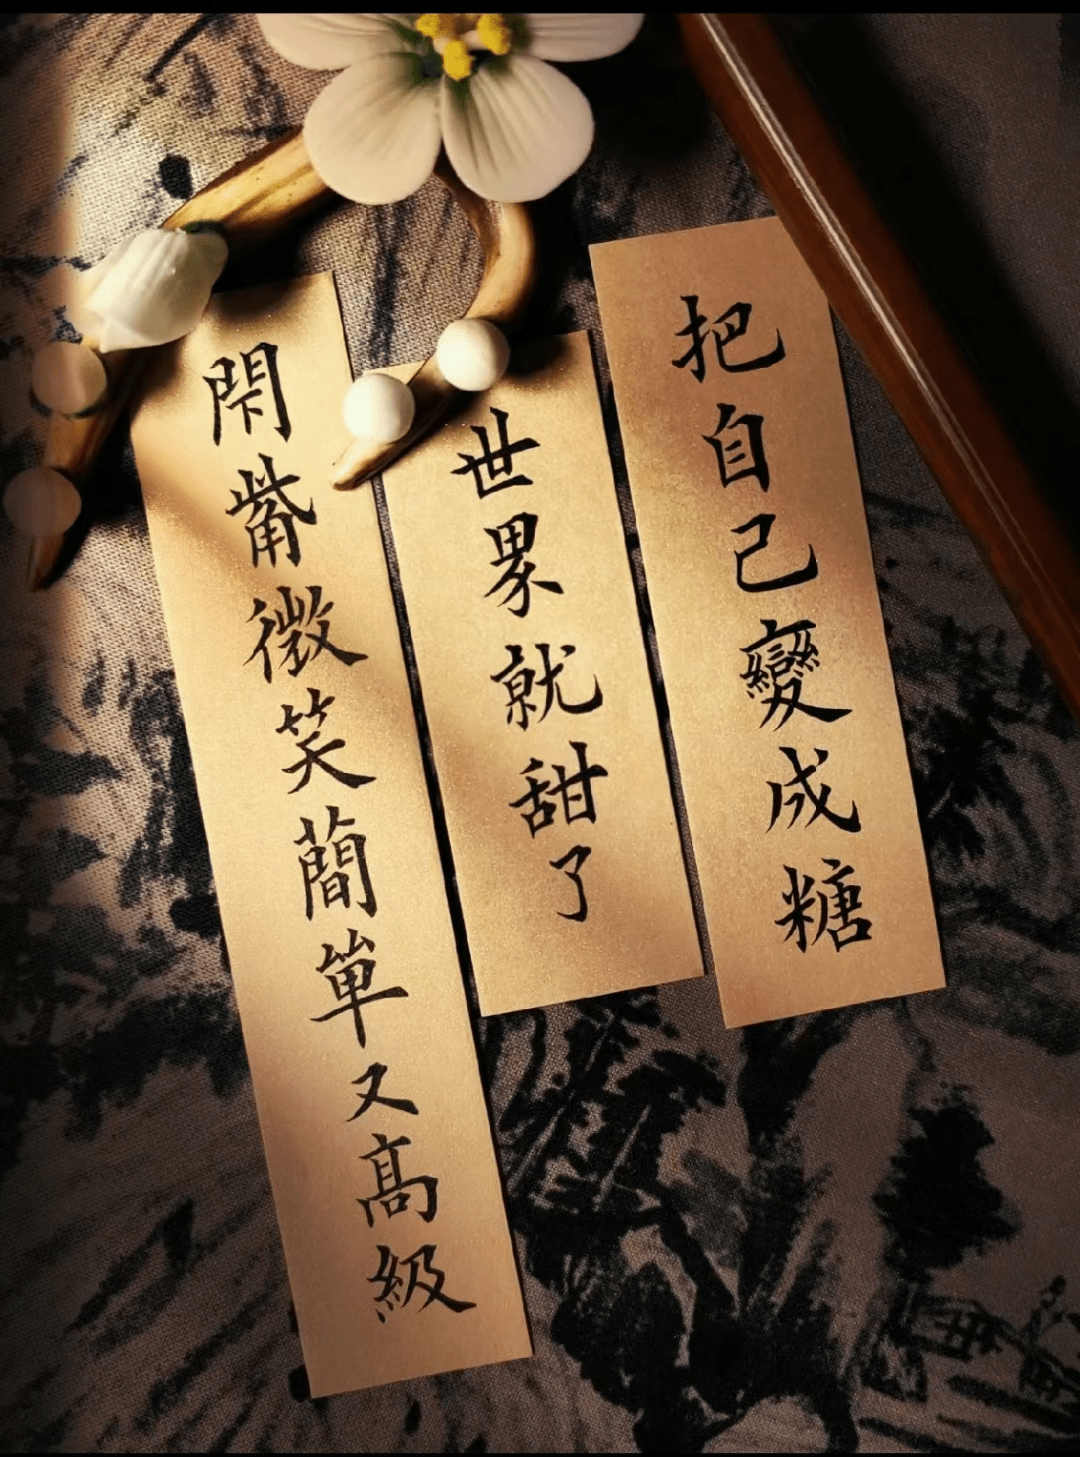 把自己變成糖
世界就甜了
閇觜微笑簡單又髙級